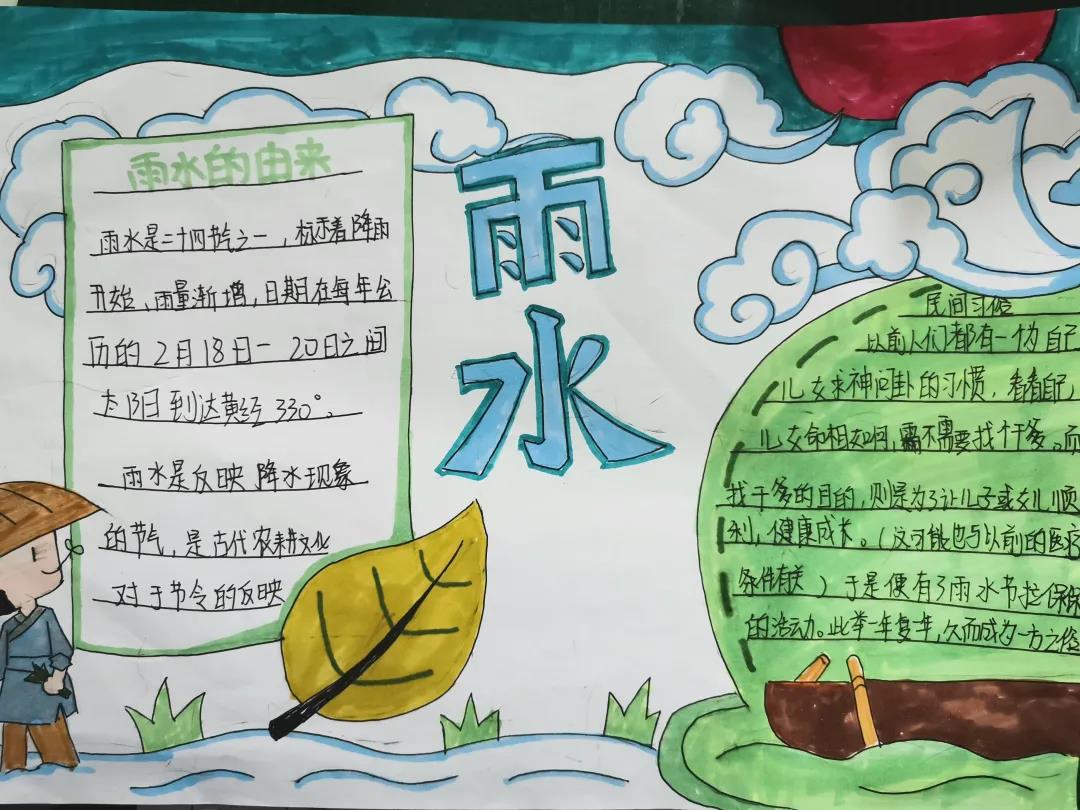 雨水的由来
雨水是二十四节气之一，标示着降雨
开始、雨量渐增，日期在每年公
历的2月18日一20日之间
太阳到达黄经330°。
雨水是反映降水现象
的节气，是古代农耕文化
对于节令的反映
雨
水
民间习俗
以前人们都有一个为自己
儿女求神问卦的习惯，看看自己
儿女命相如何，需不需要找个干爹。而
找干爹的目的，则是为了让儿子或女儿顺
利，健康成长。（这可能也与以前的医疗
条件有关）于是便有了雨水节拉保保
的活动。此举一年复一年，久而成为一方之俗